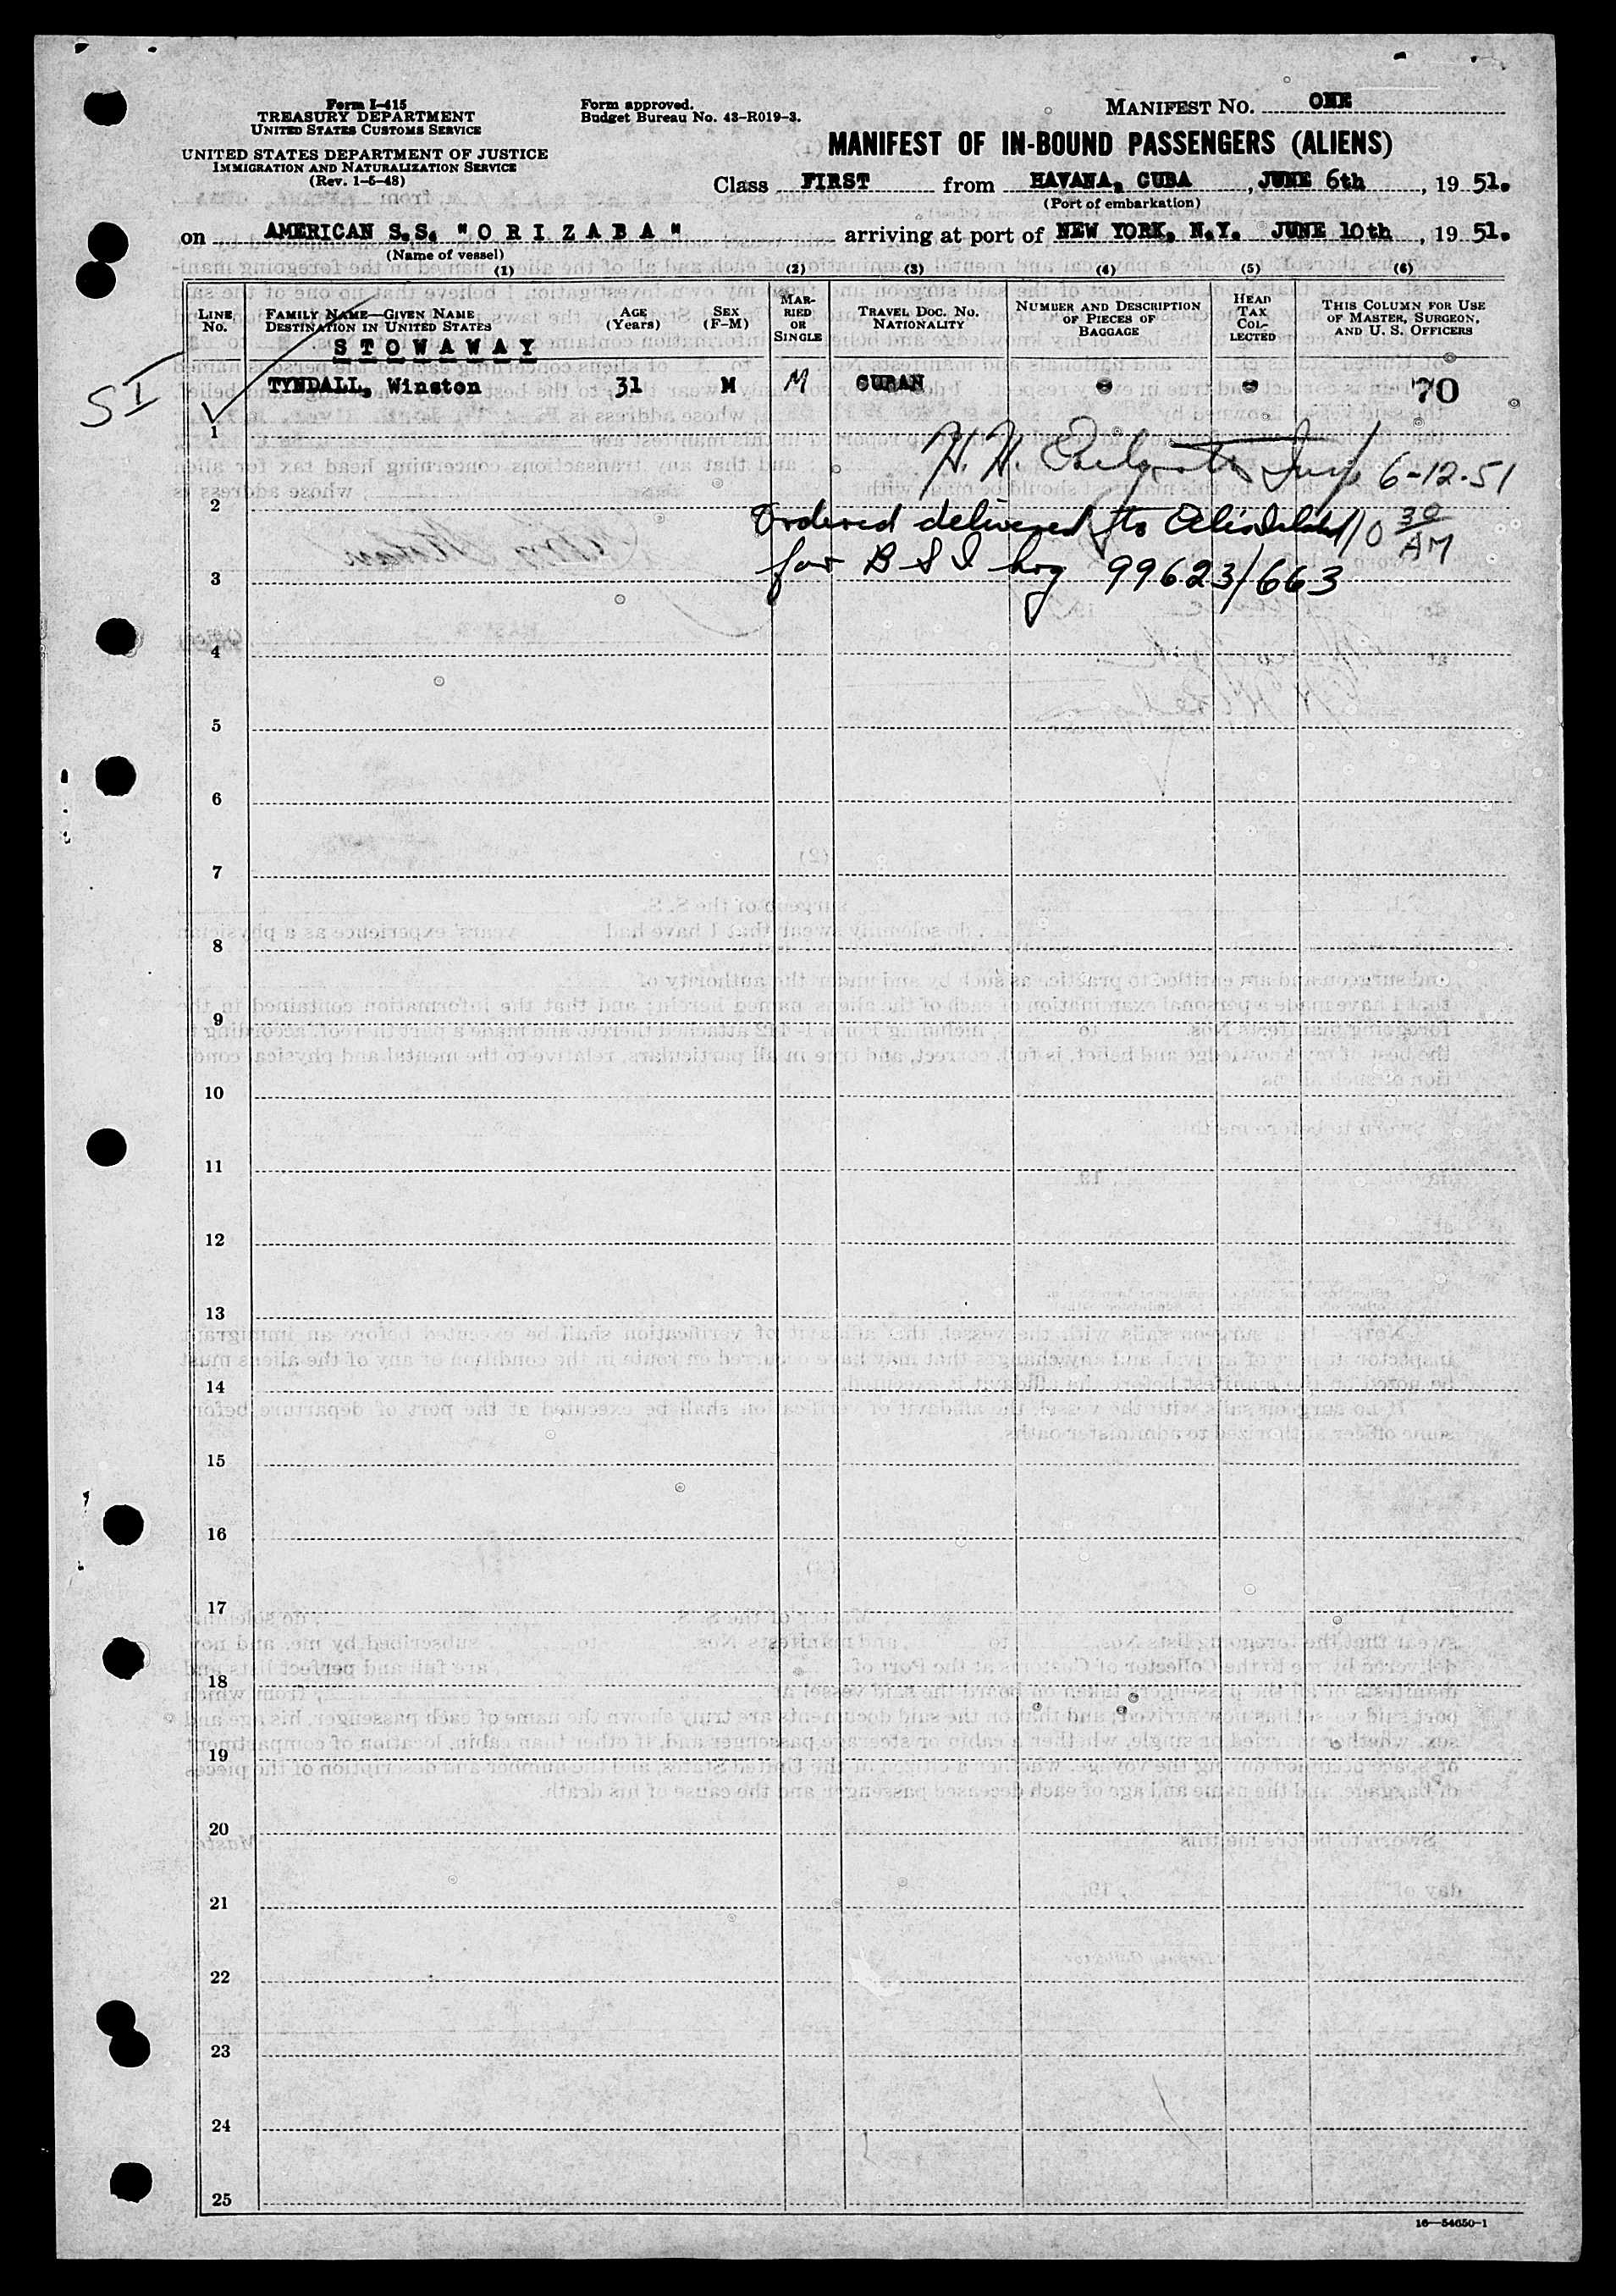 Form I-415
TREASURY DEPARTMENT
UNITED STATES CUSTOMS SERVICE
UNITED STATES DEPARTMENT OF JUSTICE
IMMIGRATION AND NATURALIZATION SERVICE
(Rev. 1-5-48)
Form approved.
Budget Bureau No. 43-R019-3.
MANIFEST NO. ONE
MANIFEST OF IN-BOUND PASSENGERS (ALIENS)
Class FIRST from HAVANA, CUBA, JUNE 6th, 19 51.
(Port of embarkation)
on AMERICAN S.S. "O R I Z A B A" arriving at port of NEW YORK, N.Y. JUNE 10th, 19 51.
(Name of vessel)
(1) (2) (3) (4) (5) (6)
LINE NO.
FAMILY NAME—GIVEN NAME
DESTINATION IN UNITED STATES
AGE (Years)
SEX (F-M)
MARRIED OR SINGLE
TRAVEL DOC. NO. NATIONALITY
NUMBER AND DESCRIPTION OF PIECES OF BAGGAGE
HEAD TAX COLLECTED
THIS COLUMN FOR USE OF MASTER, SURGEON, AND U. S. OFFICERS
S T O W A W A Y
SI TYNDALL, Winston 31 M M CUBAN - - 70
1
H. H. Insp 6-12-51
2
Ordered delivered to 10 30 AM
for B S I hrg 99623/663
3
4
5
6
7
8
9
10
11
12
13
14
15
16
17
18
19
20
21
22
23
24
25
16—54650-1